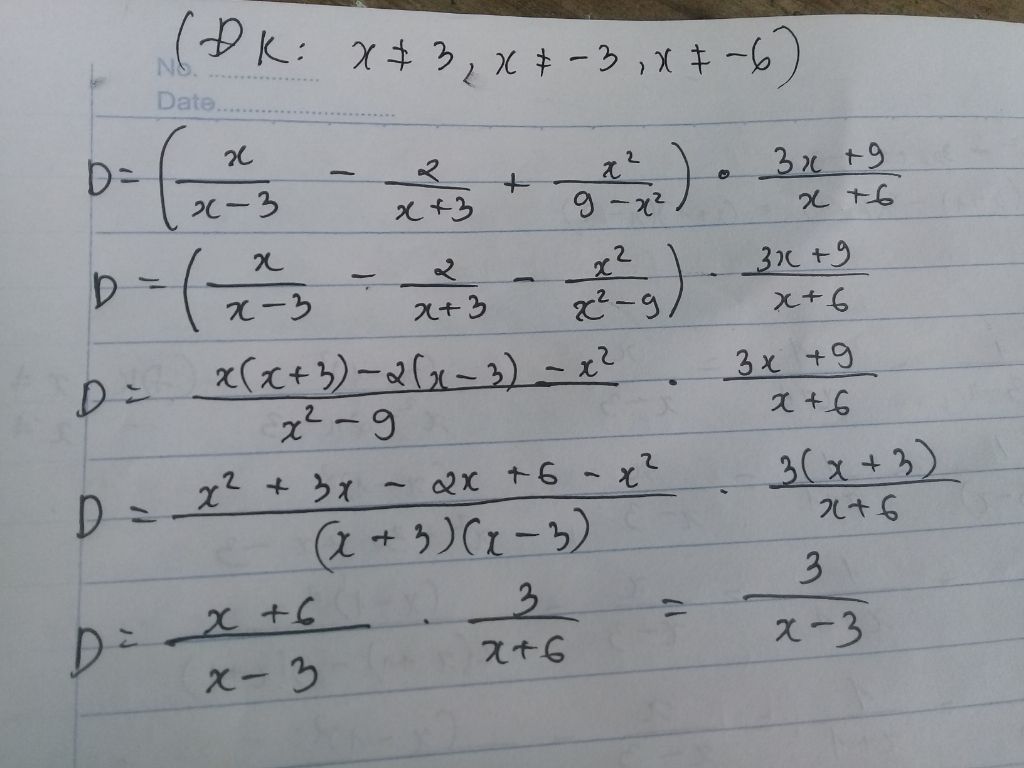 (DK: x ≠ 3, x ≠ -3, x ≠ -6)
No. ....................
Date................................
D = (x/(x-3) - 2/(x+3) + x²/(9-x²)) · (3x+9)/(x+6)
D = (x/(x-3) - 2/(x+3) - x²/(x²-9)) · (3x+9)/(x+6)
D = (x(x+3)-2(x-3)-x²)/(x²-9) · (3x+9)/(x+6)
D = (x²+3x-2x+6-x²)/((x+3)(x-3)) · 3(x+3)/(x+6)
D = (x+6)/(x-3) · 3/(x+6) = 3/(x-3)